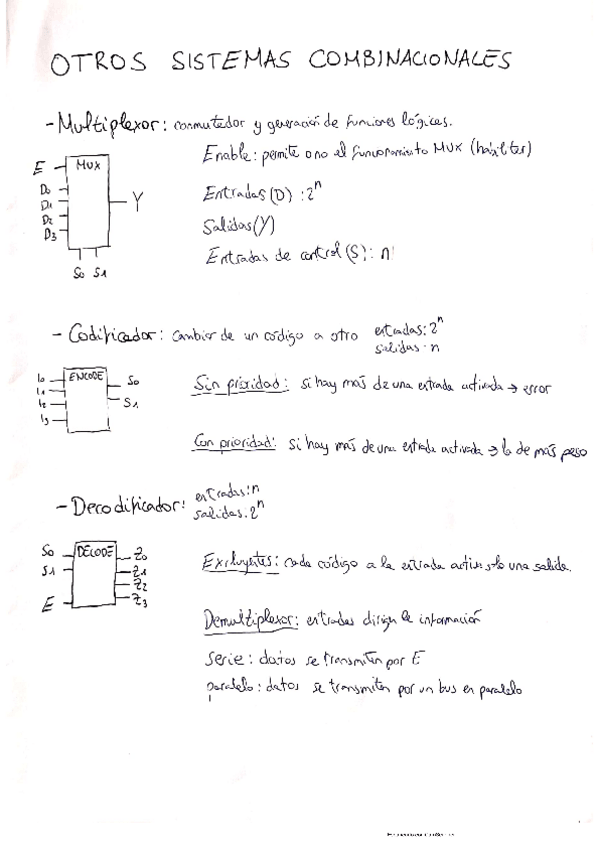 OTROS SISTEMAS COMBINACIONALES
- Multiplexor: conmutador y generación de funciones lógicas.
Enable: permite o no el funcionamiento MUX (habilitar)
E MUX
D0
D1
D2
D3
Y
S0 S1
Entradas (D): 2^n
Salidas (Y)
Entradas de control (S): n
- Codificador: cambiar de un código a otro
entradas: 2^n
salidas: n
ENCODE
I0
I1
I2
I3
S0
S1
Sin prioridad: si hay más de una entrada activada → error
Con prioridad: si hay más de una entrada activada → la de más peso
- Decodificador: entradas: n
salidas: 2^n
DECODE
S0
S1
E
Z0
Z1
Z2
Z3
Excluyentes: cada código a la entrada activa solo una salida.
Demultiplexor: entradas dirigen la información
Serie: datos se transmiten por E
paralelo: datos se transmiten por un bus en paralelo